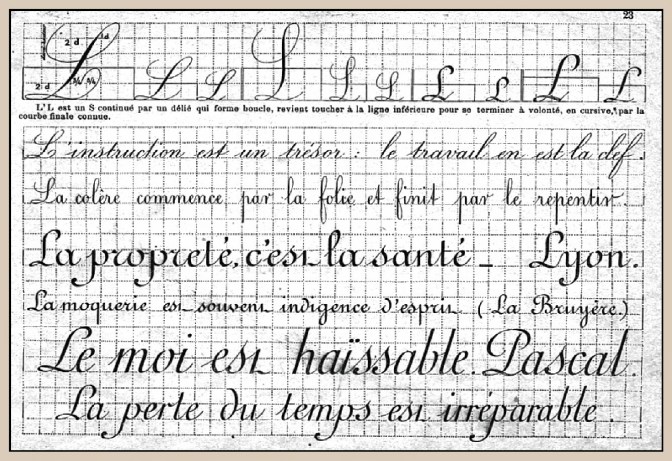 23
2 d
1d
2 d
L L L L L L L L L L L
L'L est un S continué par un délié qui forme boucle, revient toucher à la ligne inférieure pour se terminer à volonté, en cursive, par la
courbe finale connue.
L'instruction est un trésor : le travail en est la clef.
La colère commence par la folie et finit par le repentir.
La propreté, c'est la santé _ Lyon.
La moquerie est souvent indigence d'esprit (La Bruyère.)
Le moi est haïssable. Pascal.
La perte du temps est irréparable.